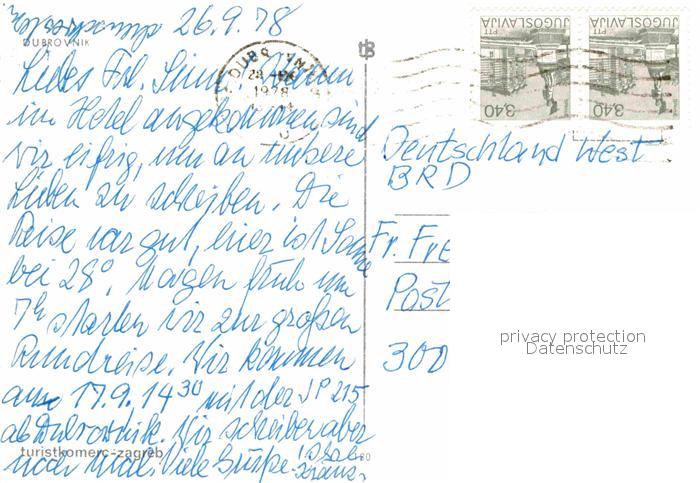 26.9.78
DUBROVNIK
Liebes Frl.
im Hotel angekommen sind
wir eifrig, um an unsere
Lieben zu schreiben. Die
Reise war gut, hier ist Sonne
bei 28°. Morgen früh um
7h starten wir zur großen
Rundreise. Wir kommen
am 17.9. 14 30 mit der JP 215
ab Dubrovnik. Wir schreiben aber
noch mal. Viele Grüße
turistkomerc-zagreb
1978
JUGOSLAVIJA
PTT
3,40
JUGOSLAVIJA
PTT
3,40
Deutschland West
BRD
Fr. Fre
Post
300
privacy protection
Datenschutz